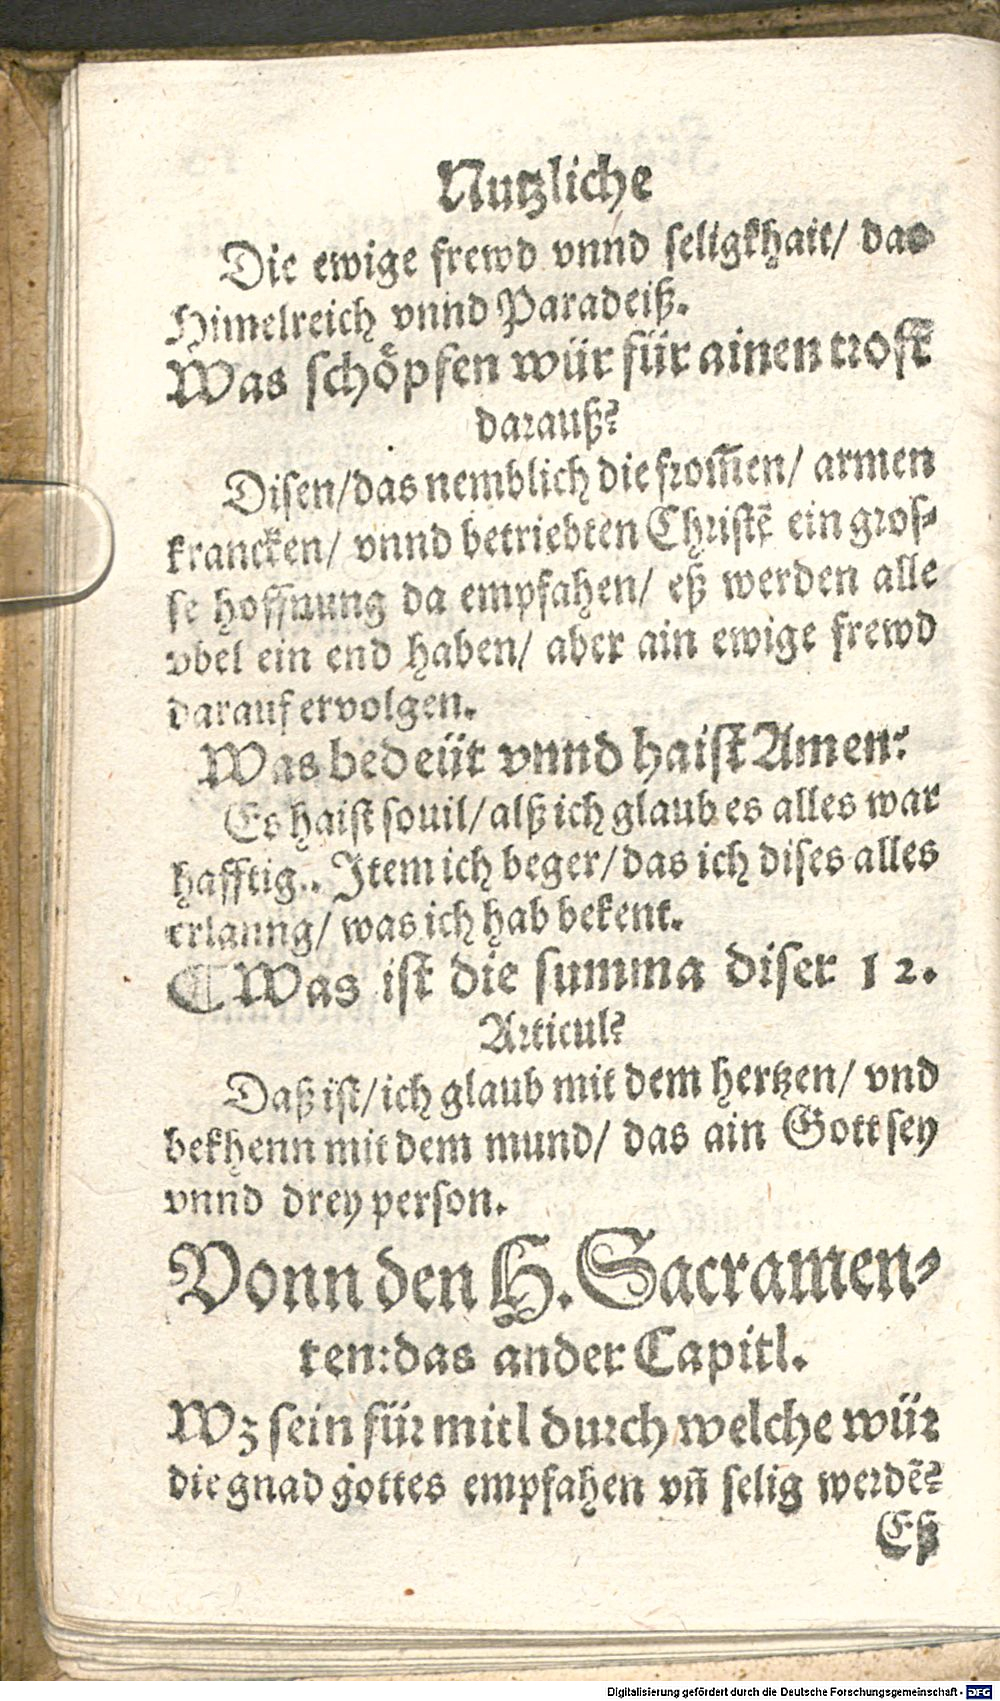 Nutzliche
Die ewige frewd vnnd seligkhait/ das
Himelreich vnnd Paradeiß.
Was schöpfen wür für ainen trost
darauß?
Disen/das nemblich die from̃en/ armen
krancken/ vnnd betriebten Christẽ ein gros-
se hoffnung da empfahen/ eß werden alle
vbel ein end haben/ aber ain ewige frewd
darauf ervolgen.
Was bedeüt vnnd haist Amen?
Es haist souil/alß ich glaub es alles war
hafftig.. Item ich beger/das ich dises alles
erlanng/ was ich hab bekent.
¶ Was ist die summa diser 12.
Articul?
Daß ist/ich glaub mit dem hertzen/ vnd
bekhenn mit dem mund/ das ain Gott sey
vnnd drey person.
Vonn den H. Sacramen-
ten: das ander Capitl.
Wz sein für mitl durch welche wür
die gnad gottes empfahen vñ selig werdẽ?
Eß
Digitalisierung gefördert durch die Deutsche Forschungsgemeinschaft - DFG